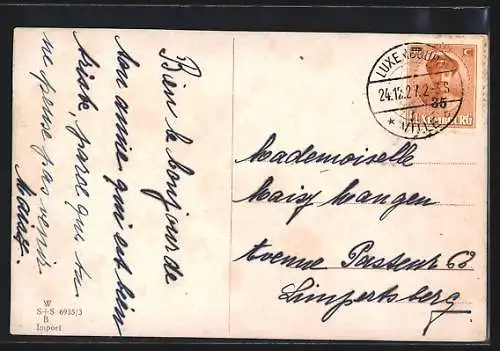 Bien le bonjour de
ton amie qui est bien
triste, parce que tu
ne peux pas venir
Maisy.
LUXEMBOURG
24.12.27.2-3S
* VILLE
35
LUXEMBOURG
Mademoiselle
Maisy Mangen
Avenue Pasteur 62
Limpertsberg.
W
S+S 6935/3
B
Import